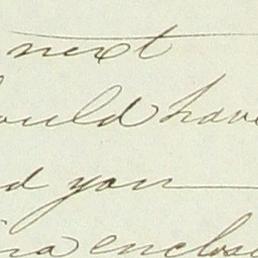 next
ould have
d you
ina enclos